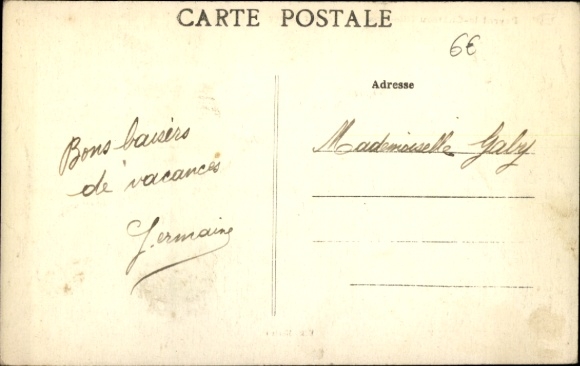 CARTE POSTALE
6€
Adresse
Bons baisers
de vacances
Germaine
Mademoiselle Gaby